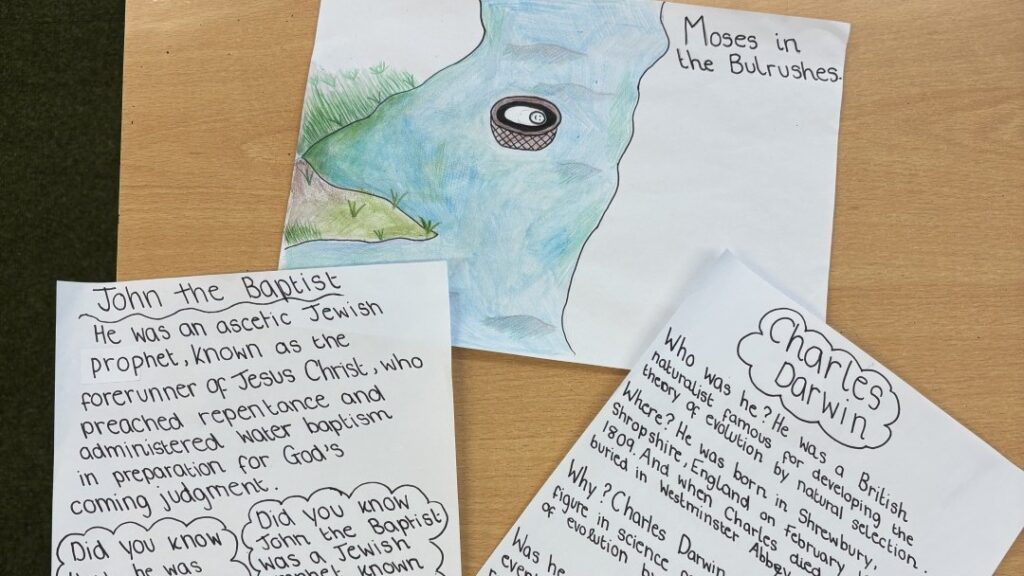 Moses in
the Bulrushes.
John the Baptist
He was an ascetic Jewish
prophet, known as the
forerunner of Jesus Christ, who
preached repentance and
administered water baptism
in preparation for God's
coming judgment.
Did you know
he was
Did you know
John the Baptist
was a Jewish
known
Charles
Darwin
Who was he? He was a British
naturalist famous for developing the
theory of evolution by natural selection.
Where? He was born in Shrewbury,
Shropshire, England on February
1809. And when Charles died
buried in Westminster Abbey
Why? Charles Darwin
figure in science
of evolution
Was he